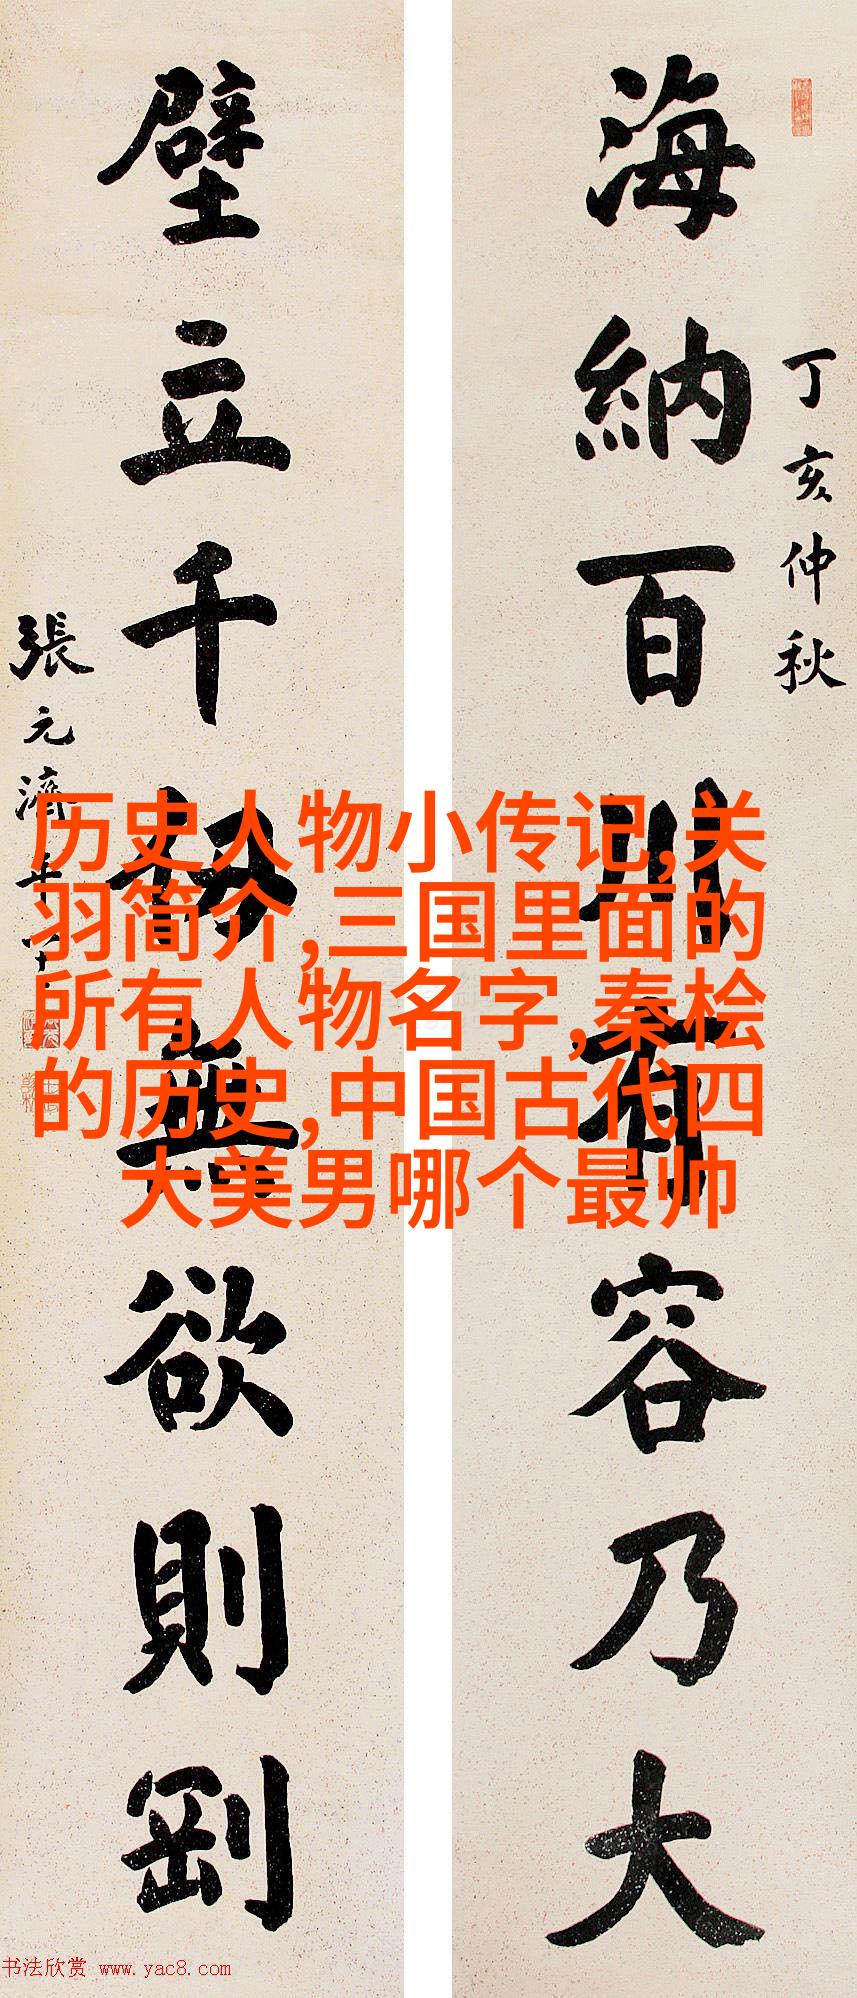 海納百川有容乃大
丁亥仲秋
壁立千仞無欲則剛
張元濟年
历史人物小传记,关
羽简介,三国里面的
所有人物名字,秦桧
的历史,中国古代四
大美男哪个最帅
书法欣赏 www.yac8.com